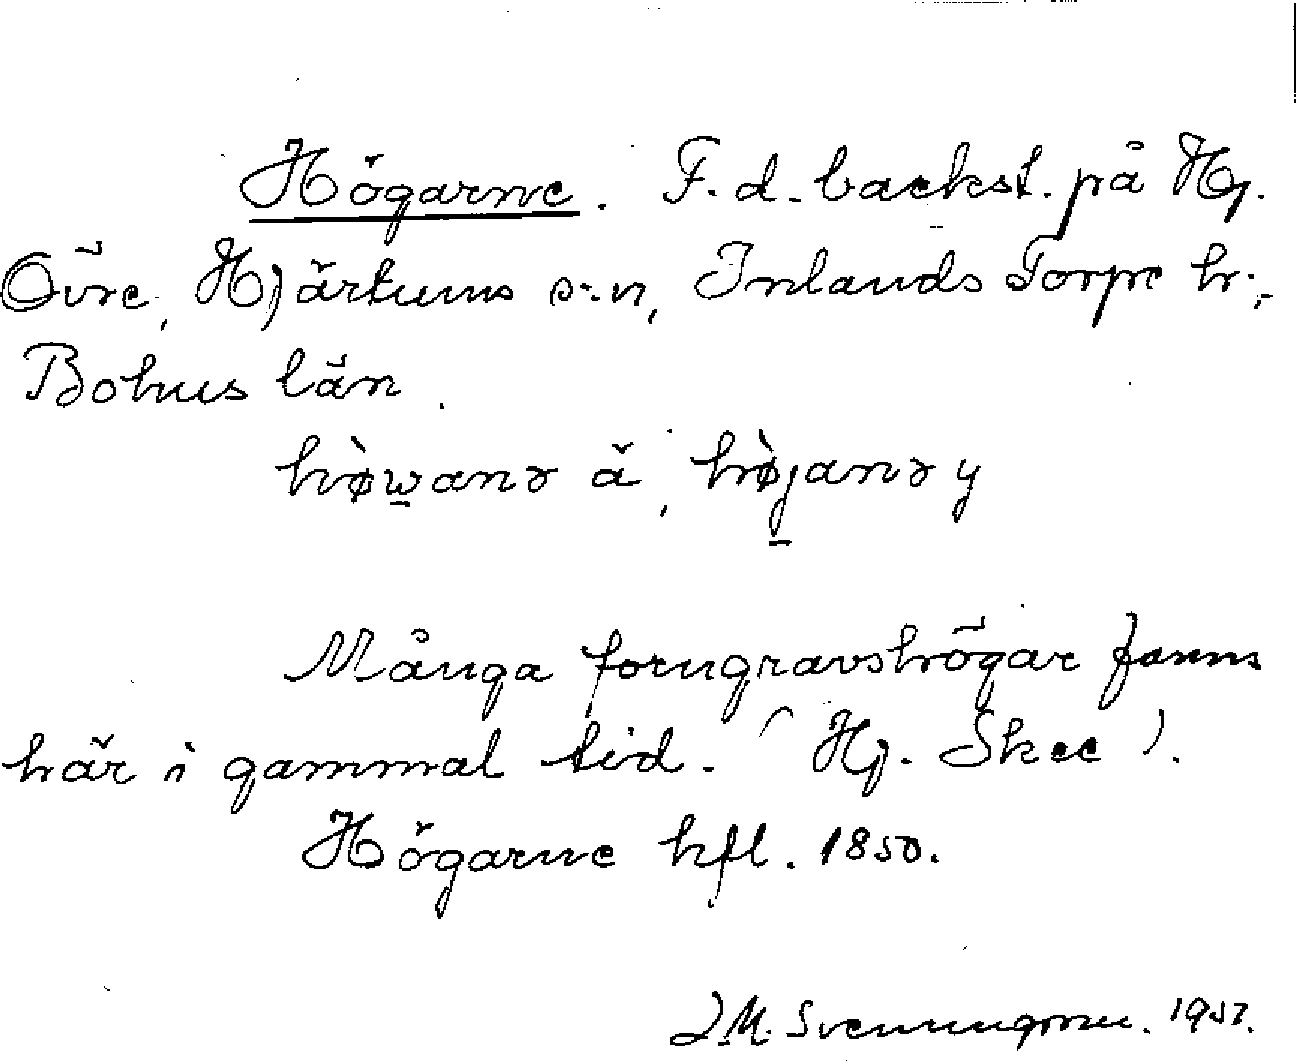 Högarne. F. d. backst. på Hj.
Övre, Hjärtums s:n, Inlands Torpe hr.,
Bohus län.
hø̀w̱anɘ ä, hø̀j̱anɘ y
Många forngravshögar fanns
här i gammal tid. (Hj. Skee).
Högarne hfl. 1850.
J.M. Svenungsson. 1957.